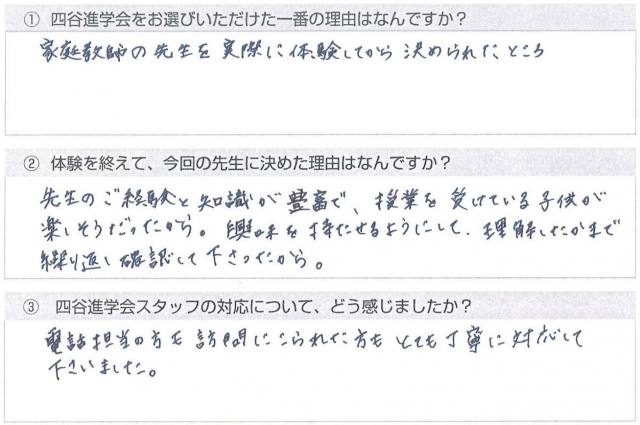 ① 四谷進学会をお選びいただけた一番の理由はなんですか？
家庭教師の先生を実際に体験してから決められたところ
② 体験を終えて、今回の先生に決めた理由はなんですか？
先生のご経験と知識が豊富で、授業を受けている子供が
楽しそうだったから。興味を持たせるようにして、理解したかまで
繰り返し確認して下さったから。
③ 四谷進学会スタッフの対応について、どう感じましたか？
電話担当の方も訪問にこられた方もとても丁寧に対応して
下さいました。